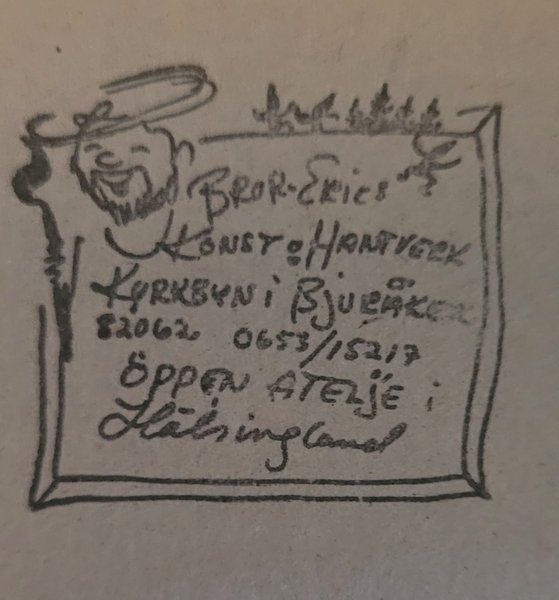 BROR-Erics
KONST o HANTVERK
KYRKBYN i BJURÅKER
82062 0653/15217
ÖPPEN ATELJE i
Hälsingland